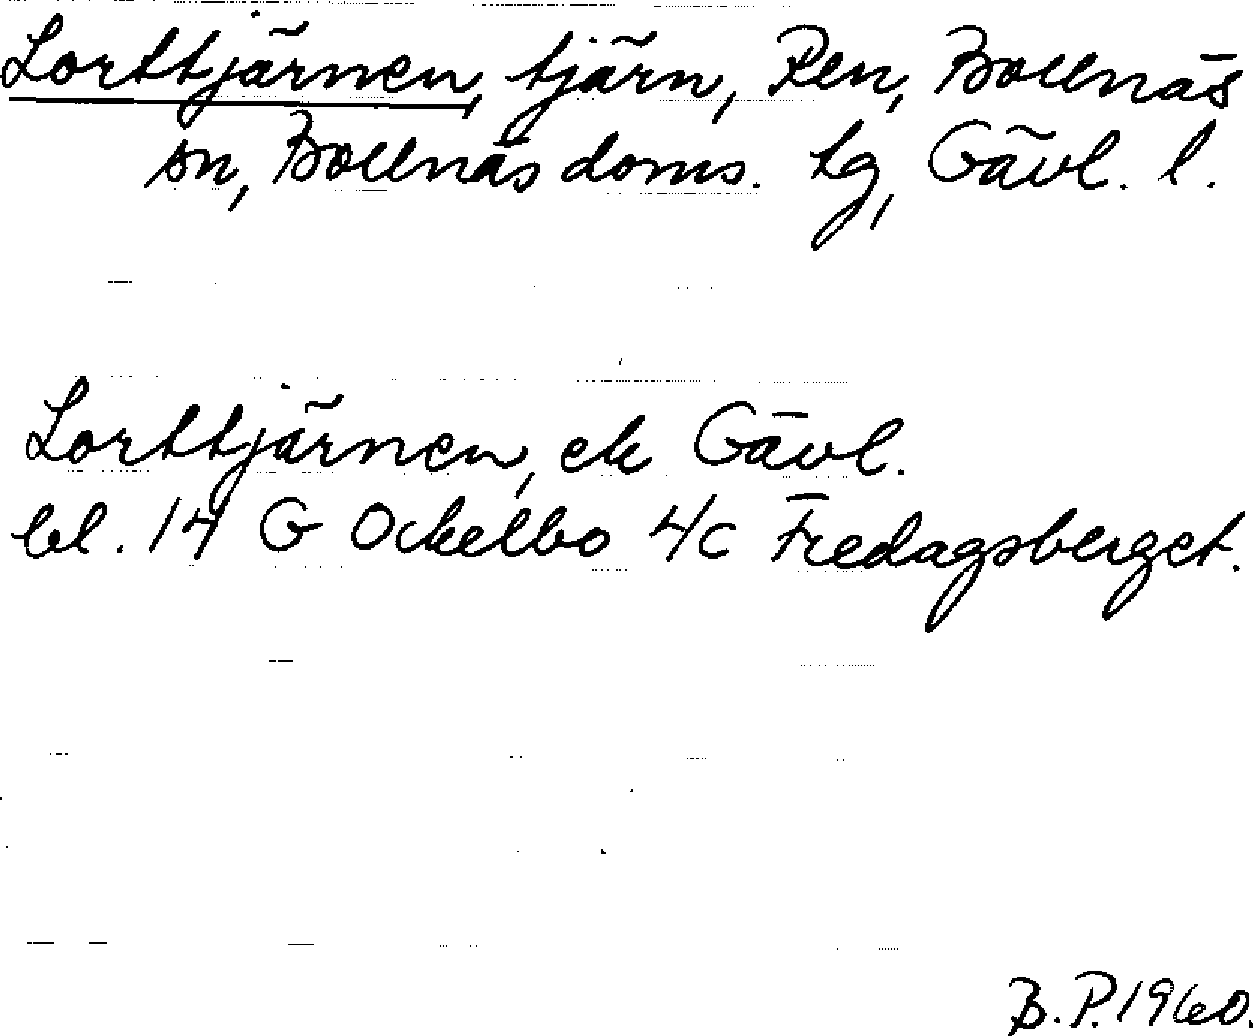 Lorttjärnen, tjärn, Ren, Bollnäs
sn, Bollnäs doms. tg, Gävl. l.
Lorttjärnen, ek Gävl.
bl. 14 G Ockelbo 4/c Fredagsberget.
B.P. 1960.